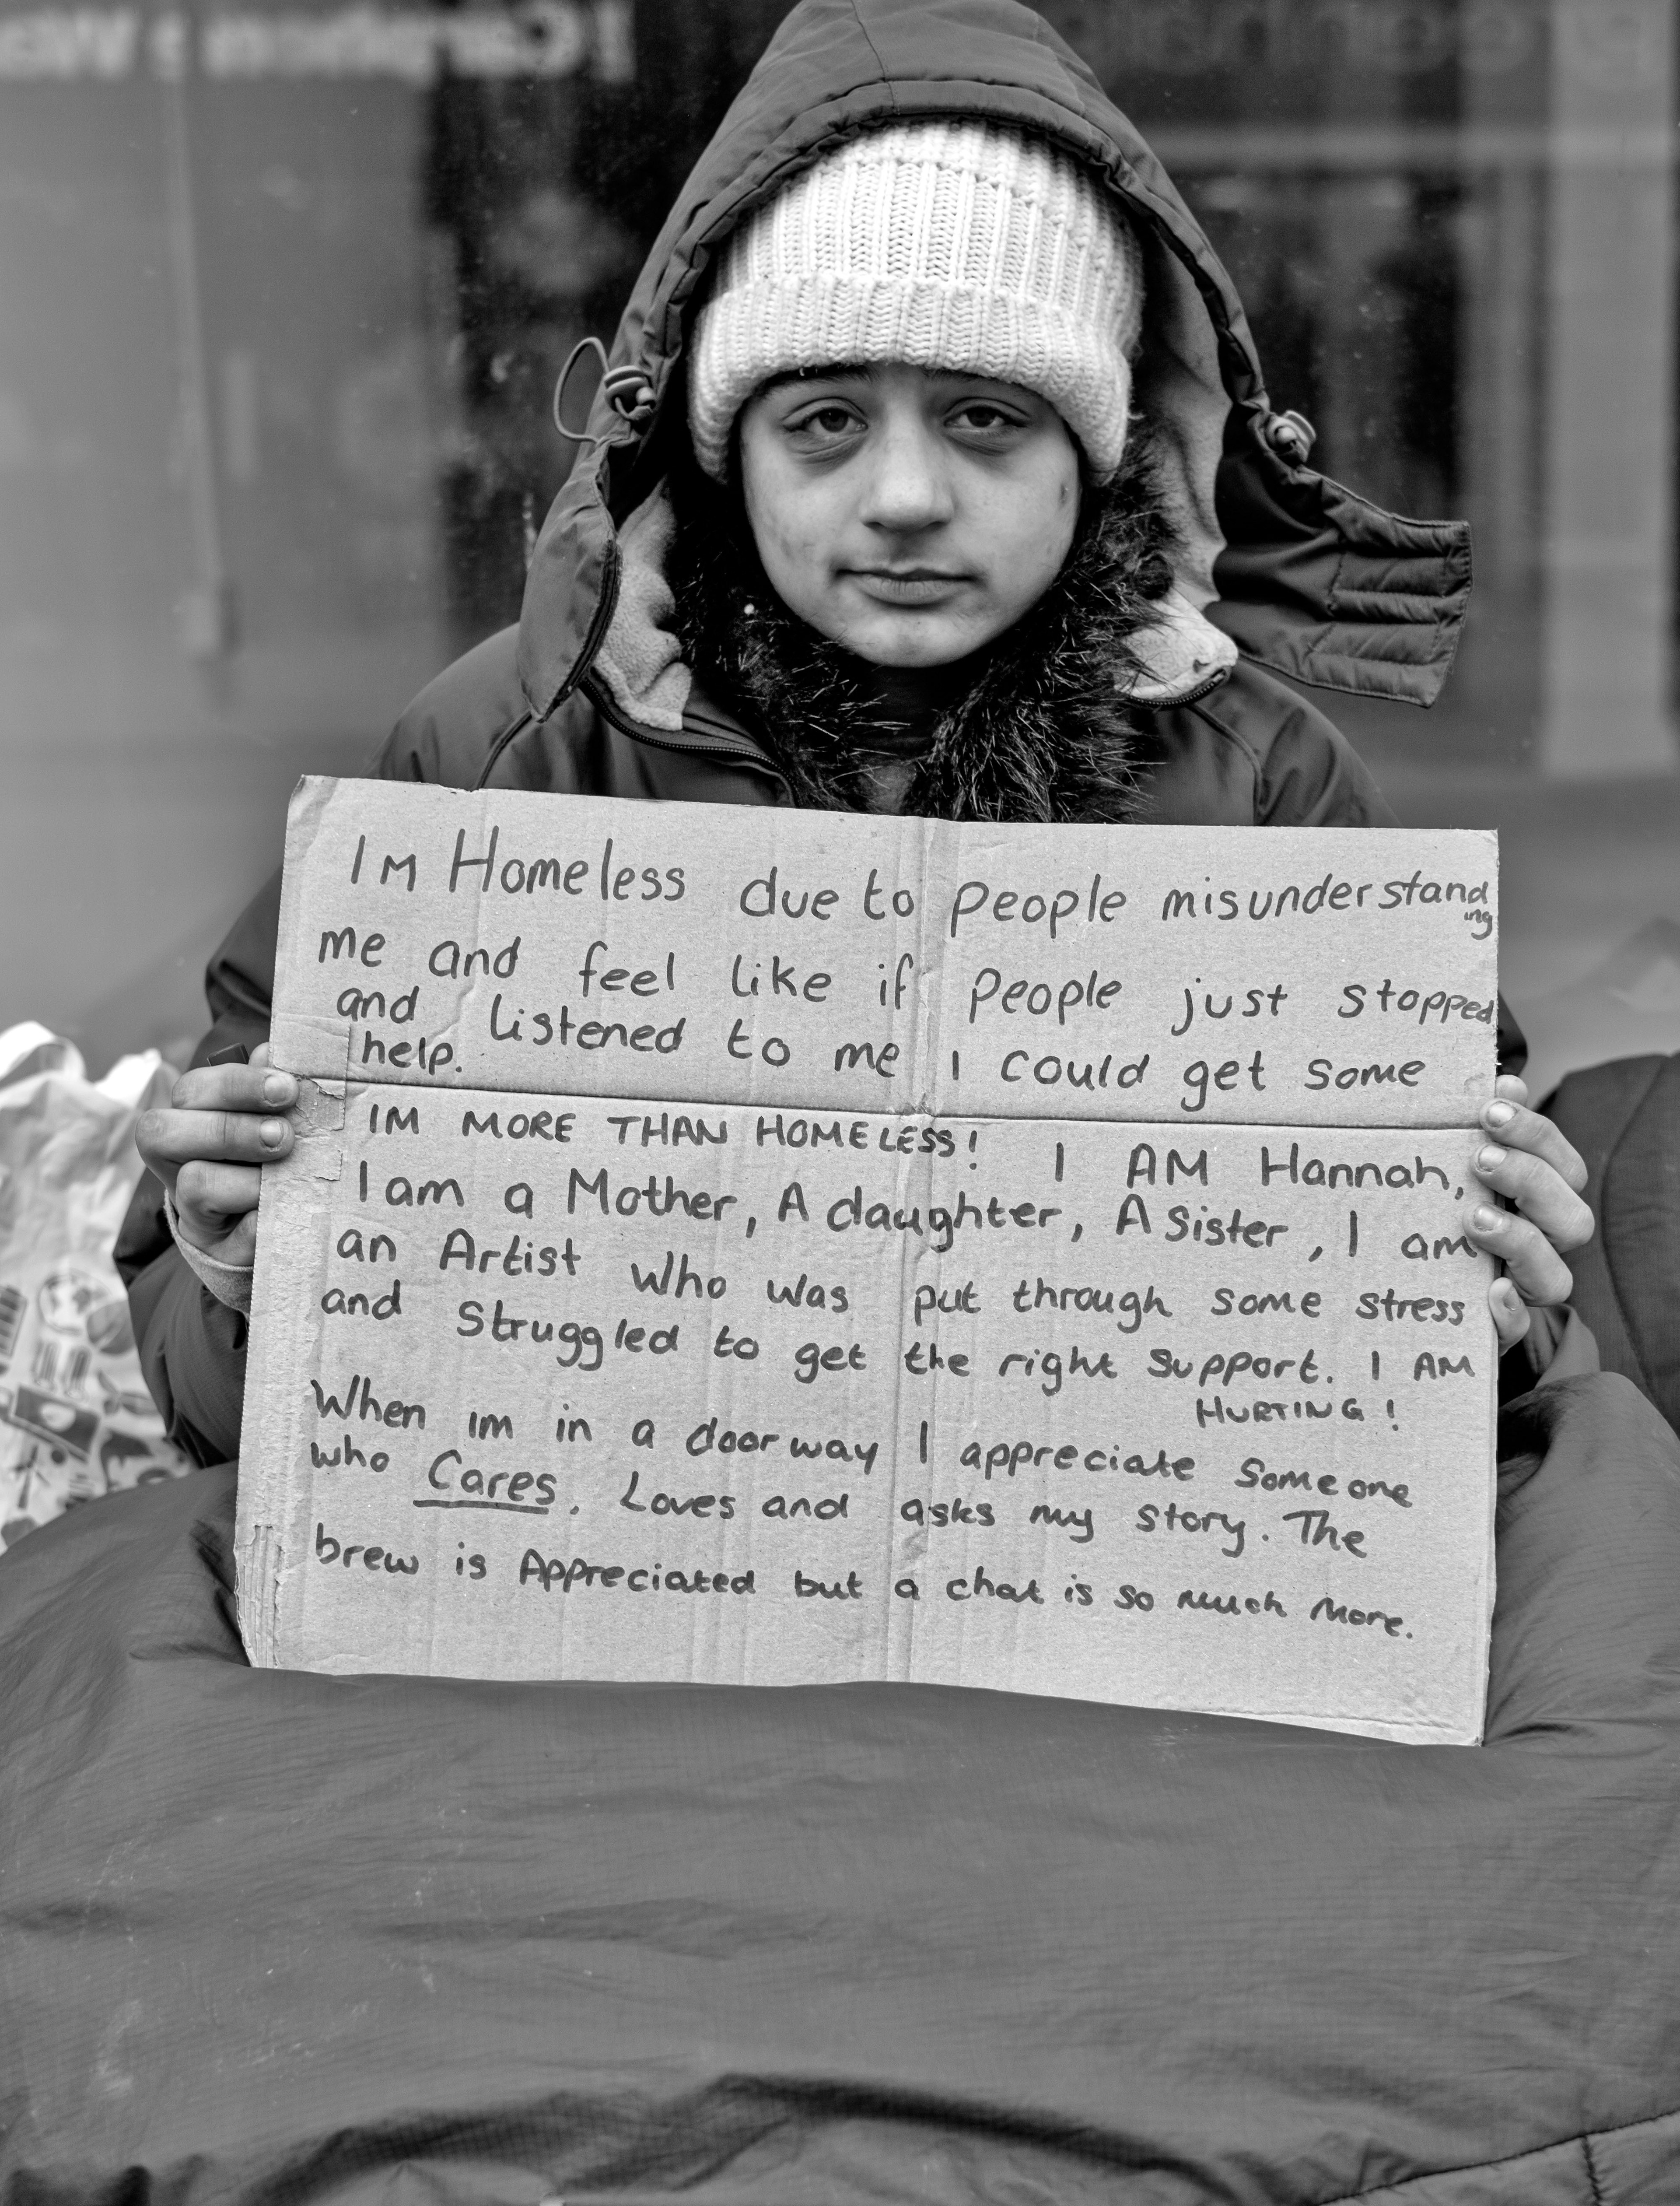 Im Homeless due to people misunderstanding
me and feel like if people just stopped
and listened to me I could get some
help.
IM MORE THAN HOMELESS! I AM Hannah,
I am a Mother, A daughter, A sister, I am
an Artist who was put through some stress
and struggled to get the right support. I AM
HURTING!
When im in a doorway I appreciate someone
who Cares. Loves and asks my story. The
brew is Appreciated but a chat is so much more.